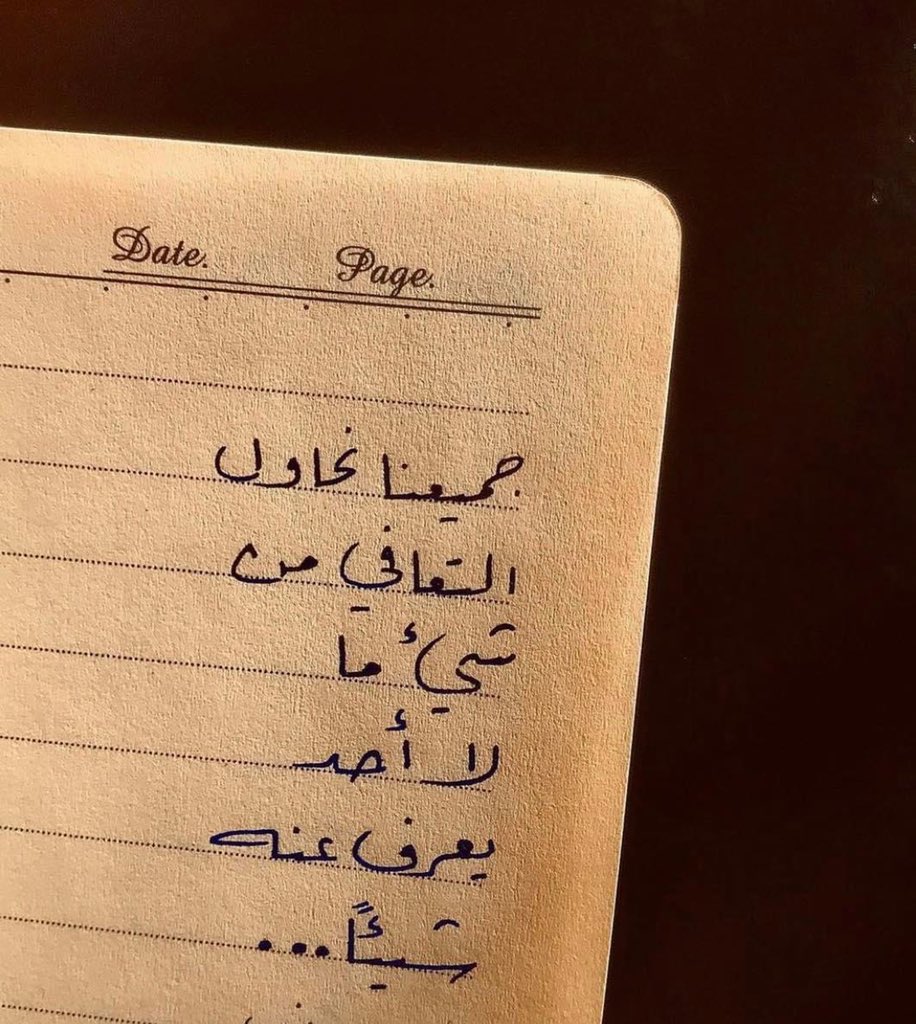 Date. Page.
جميعنا نحاول
التعافي من
شيء ما
لا أحد
يعرف عنه
شيئاً...